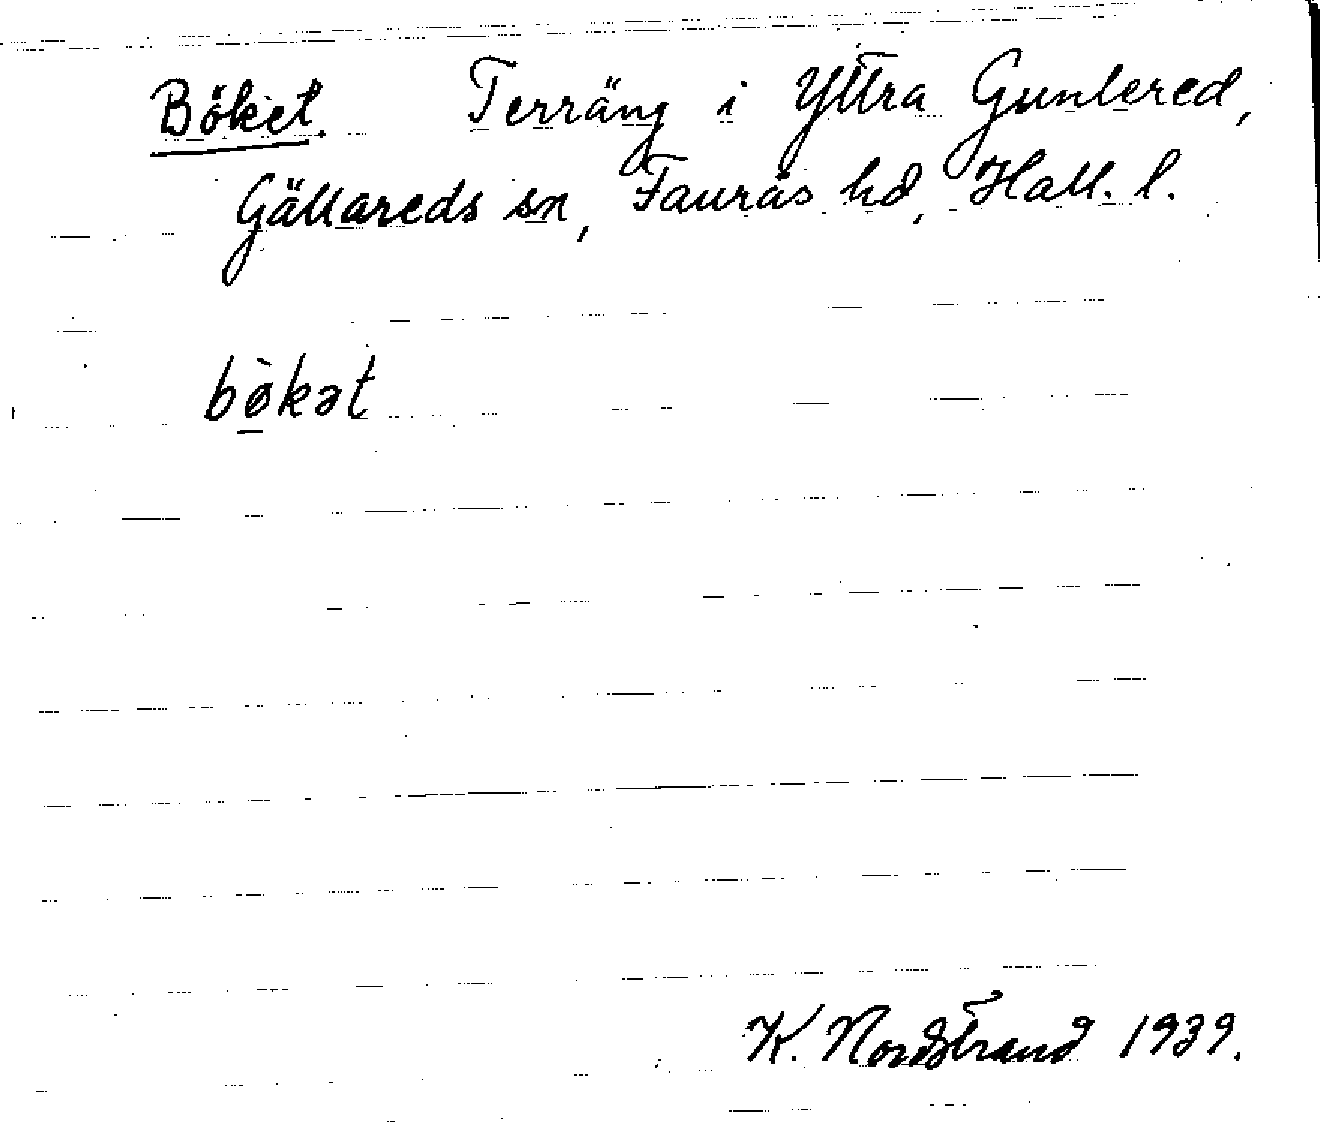 Böket. Terräng i Yttra Gunlered,
Gällareds sn, Faurås hd, Hall. l.
bø̀kət
K. Nordstrand 1939.